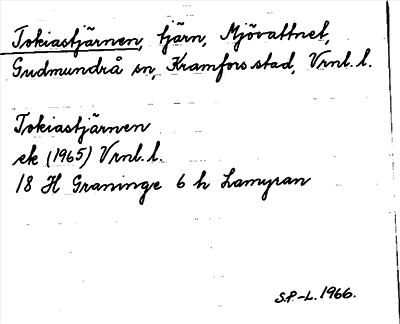 Tokiastjärnen, tjärn, Mjövattnet,
Gudmundrå sn, Kramfors stad, Vrnl. l.
Tokiastjärnen
ek (1965) Vrnl. l.
18 H Graninge 6 h Lamyran
S.P-L. 1966.